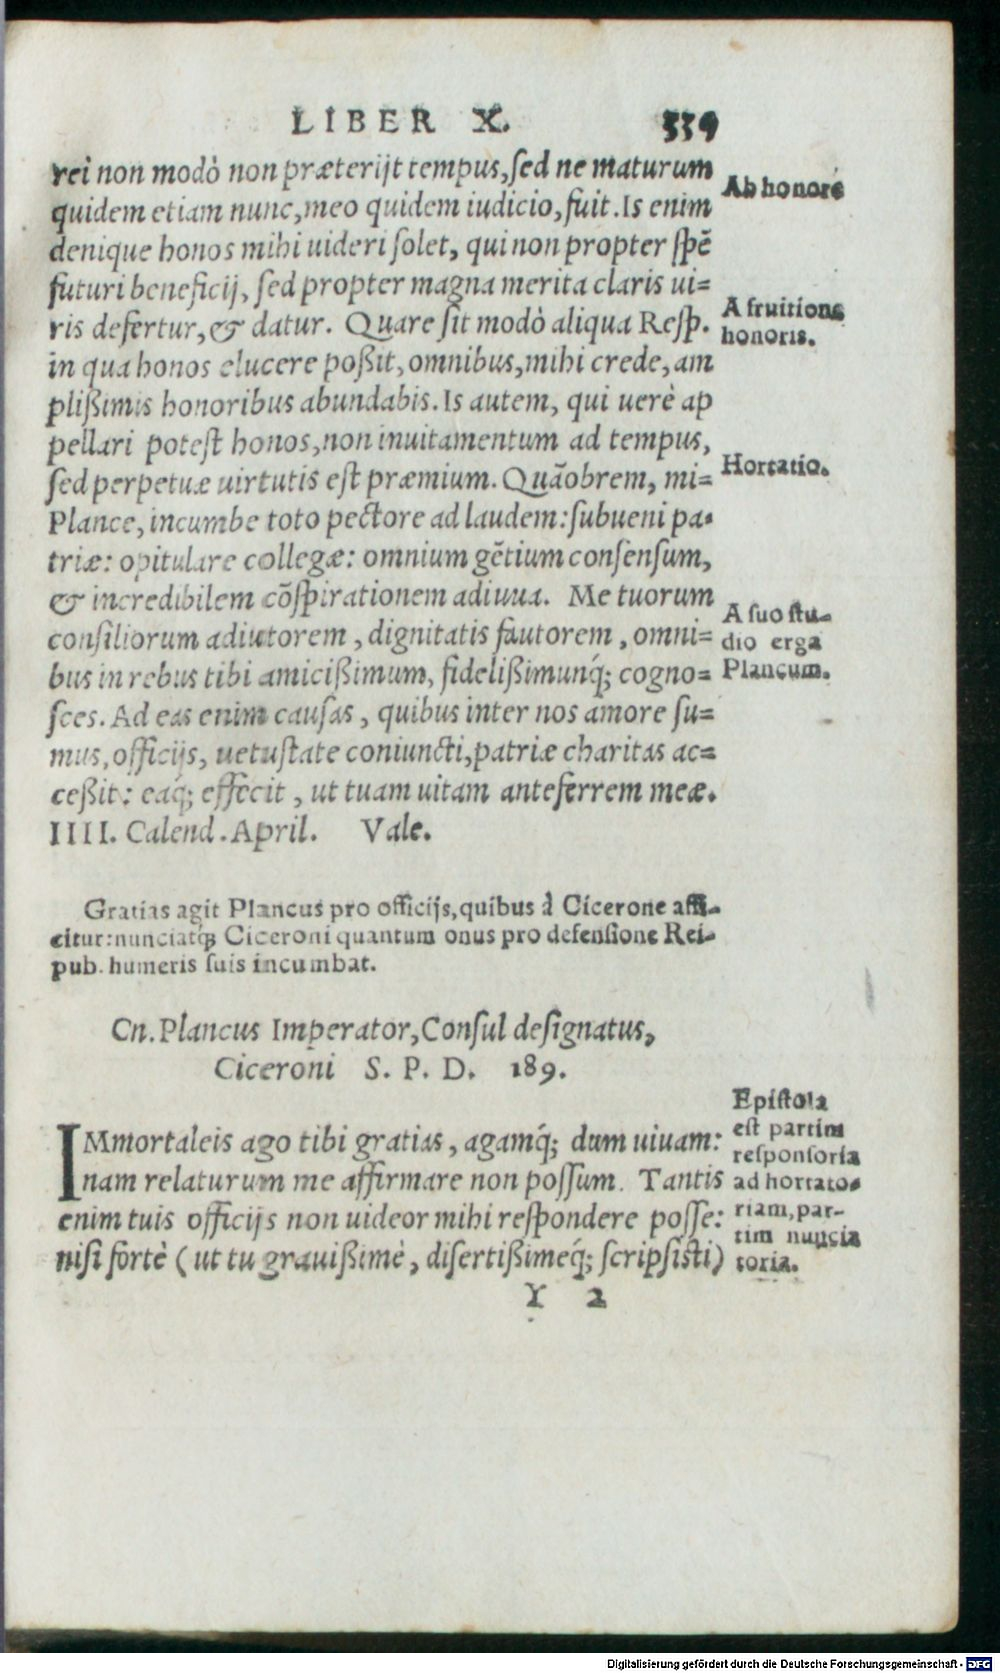 LIBER X. 339
rei non modò non præterijt tempus, sed ne maturum
quidem etiam nunc, meo quidem iudicio, fuit. Is enim
denique honos mihi uideri solet, qui non propter spẽ
futuri beneficij, sed propter magna merita claris ui=
ris defertur, & datur. Quare sit modò aliqua Resp.
in qua honos elucere poßit, omnibus, mihi crede, am
plißimis honoribus abundabis. Is autem, qui uerè ap
pellari potest honos, non inuitamentum ad tempus,
sed perpetuæ uirtutis est præmium. Quãobrem, mi=
Plance, incumbe toto pectore ad laudem: subueni pa=
triæ: opitulare collegæ: omnium gẽtium consensum,
& incredibilem cõspirationem adiuua. Me tuorum
consiliorum adiutorem, dignitatis fautorem, omni=
bus in rebus tibi amicißimum, fidelißimunq́; cogno=
sces. Ad eas enim causas, quibus inter nos amore su=
mus, officijs, uetustate coniuncti, patriæ charitas ac=
ceßit: eaq́; effecit, ut tuam uitam anteferrem meæ.
IIII. Calend. April. Vale.
Ab honore
A fruitione
honoris.
Hortatio.
A suo stu-
dio erga
Plancum.
Gratias agit Plancus pro officijs, quibus à Cicerone affi-
citur: nunciatq́; Ciceroni quantum onus pro defensione Rei-
pub. humeris suis incumbat.
Cn. Plancus Imperator, Consul designatus,
Ciceroni S. P. D. 189.
IMmortaleis ago tibi gratias, agamq́; dum uiuam:
nam relaturum me affirmare non possum. Tantis
enim tuis officijs non uideor mihi respondere posse:
nisi fortè (ut tu grauißimè, disertißimeq́; scripsisti)
Epistola
est partim
responsoria
ad hortato=
riam, par-
tim nuncia
toria.
Y 2
Digitalisierung gefördert durch die Deutsche Forschungsgemeinschaft - DFG